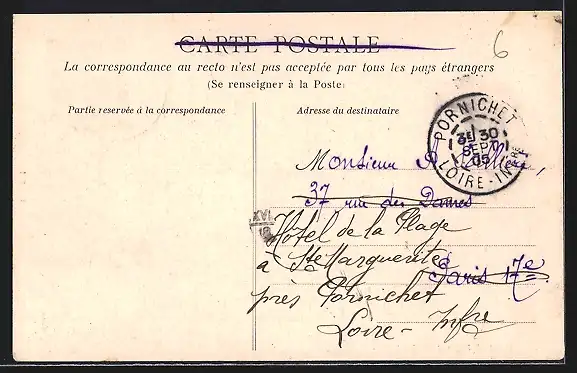 CARTE POSTALE
6
La correspondance au recto n'est pas acceptée par tous les pays étrangers
(Se renseigner à la Poste)
Partie reservée à la correspondance
Adresse du destinataire
PORNICHET
3E 30
SEPT
05
LOIRE-INFRE
Monsieur
37 rue des Dames
Paris 17e
XVI
Hôtel de la Plage
à Ste Marguerite
près Pornichet
Loire-Infre